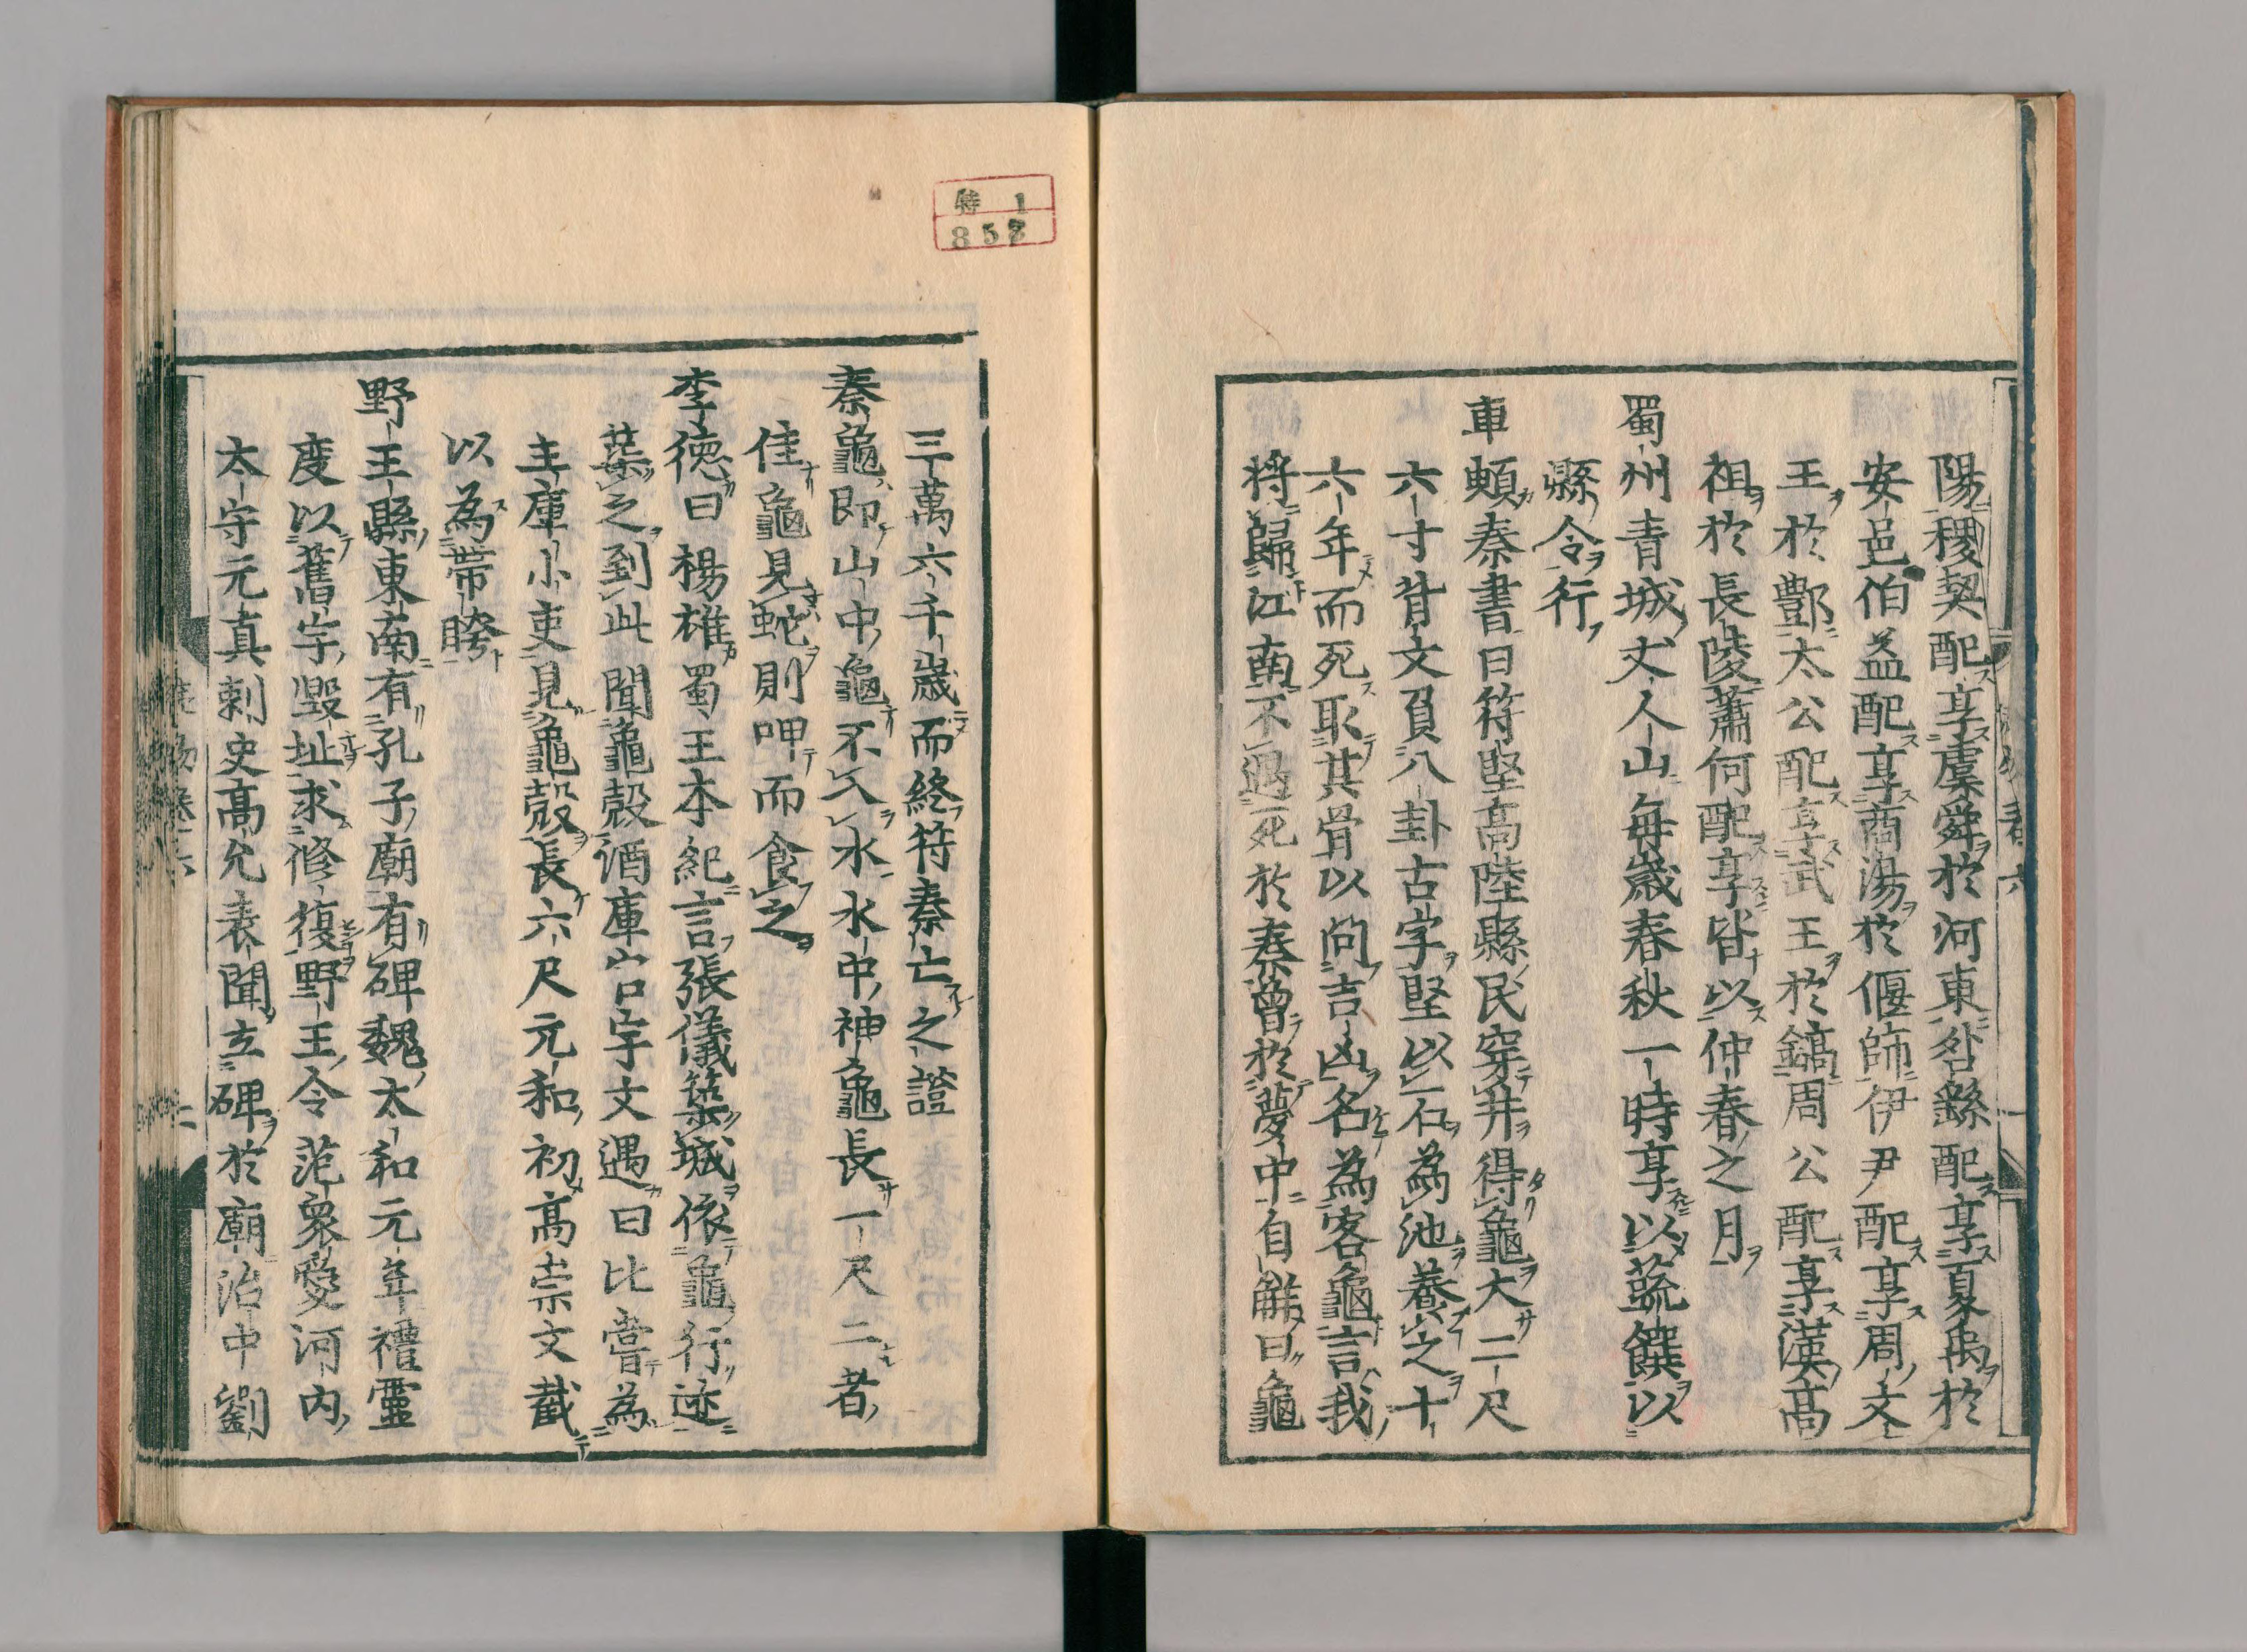 陽稷契配享虞舜於河東咎繇配享夏禹於
安邑伯益配享商湯於偃師伊尹配享周文
王於酆太公配享武王於鎬周公配享漢高
祖於長陵蕭何配享皆以仲春之月
蜀州青城丈人山毎歳春秋一時享以蔬饌以
縣令行
車頻秦書曰符堅高陸縣民穿井得龜大二尺
六寸背文負八卦古字堅以石為池養之十
六年而死取其骨以問吉凶名為客龜言我
将歸江南不遇死於秦曽於夢中自解曰龜
三萬六千歳而終符秦亡之證
秦龜即山中龜不入水水中神龜長一尺二者
佳龜見蛇則呷而食之
李徳曰楊雄蜀王本紀言張儀築城依龜行迹
築之到此聞龜殻酒庫
字文遇曰比嘗為
主庫小吏見龜殻長六尺元和初高崇文截
以為帯胯
野王縣東南有孔子廟有碑魏太和元年禮靈
度以舊宇毀址求修復野王令范衆愛河内
太守元真刺史高允表聞立碑於廟治中劉
特 1
857